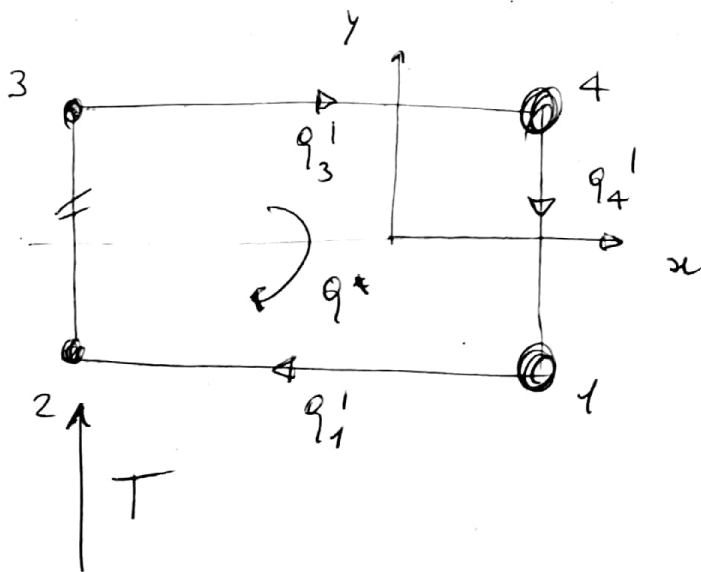 y
3
4
q₃'
q₄'
x
q*
2
q₁'
1
T